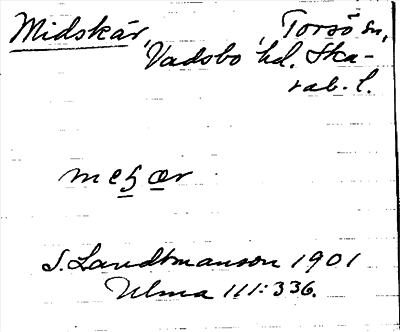 Midskär, Torsö sn,
Vadsbo hd. Ska-
rab. l.
S. Landtmanson 1901
Ulma 111:336.